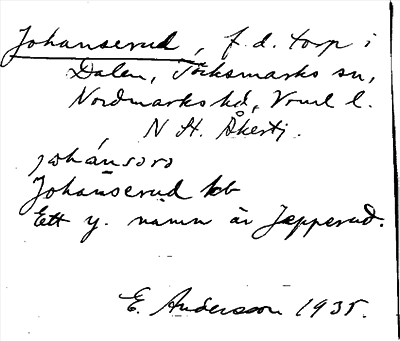 Johanserud, f.d. torp i
Dalen, Töcksmarks sn,
Nordmarks hd, Vrml l.
N H. Åkertj.
johánsərə
Johanserud kb
Ett y. namn är Jepperud.
E. Andersson 1935.